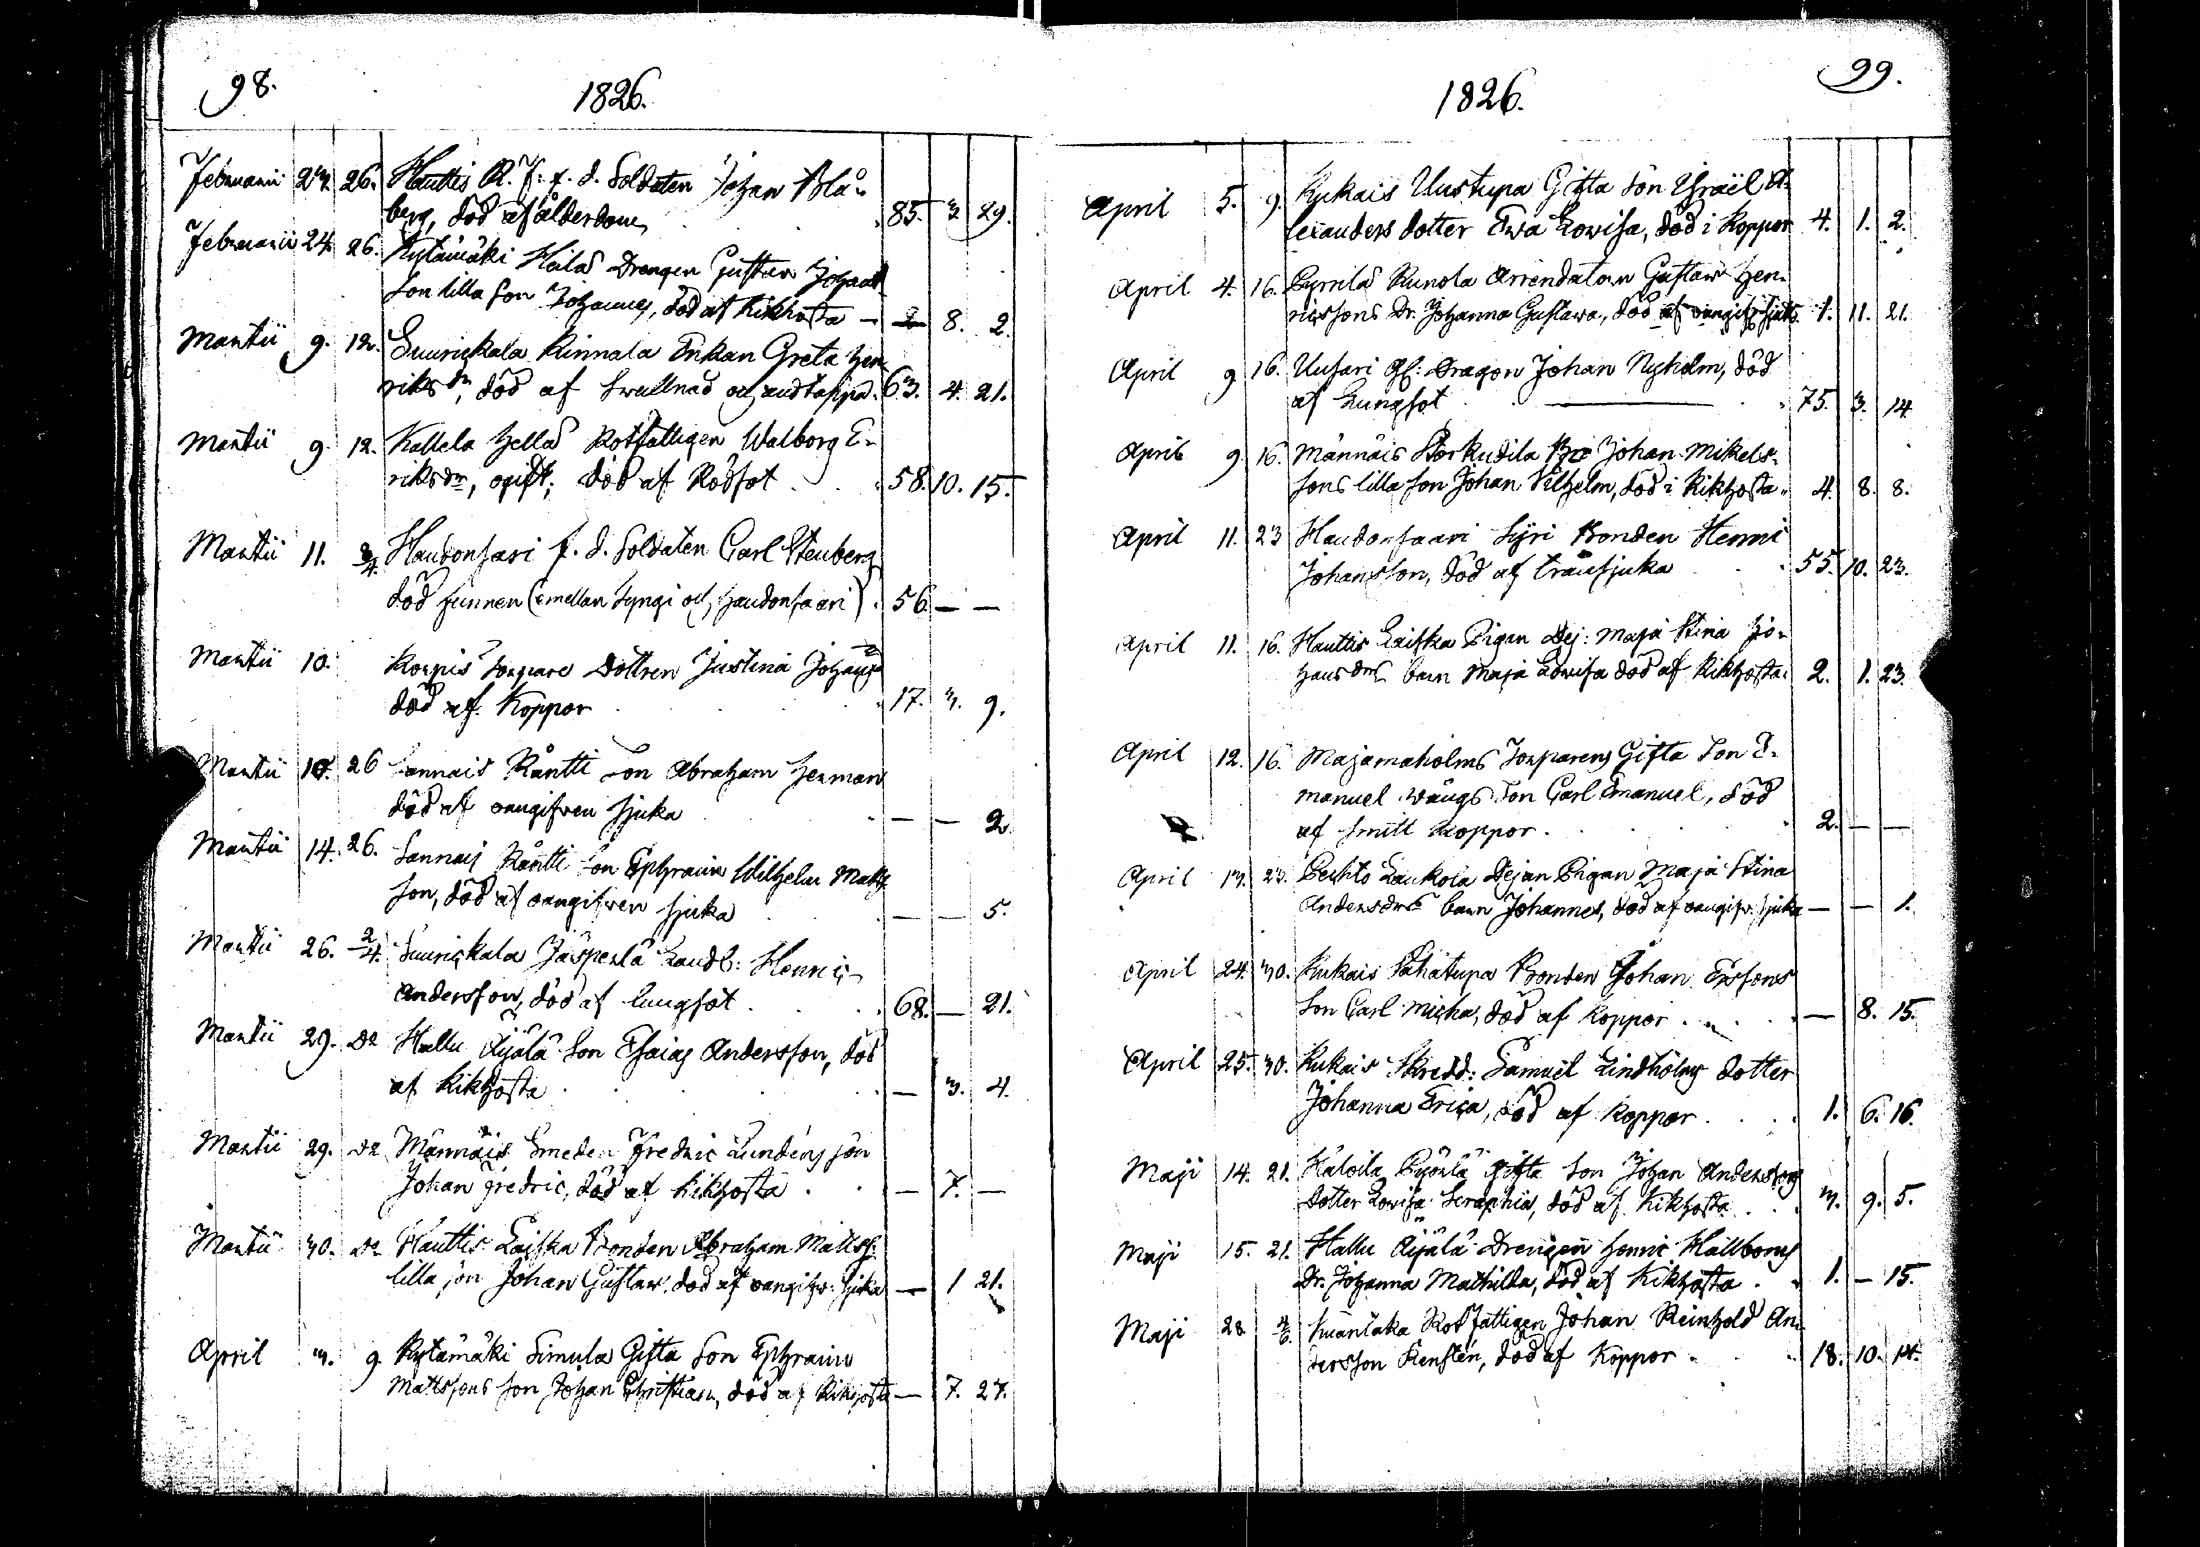 98.
1826.
Februarii 23. 26. Hauttis R. f. d. Soldaten Johan Blå-
berg, död af ålderdom 85. 3. 29.
Februarii 24. 26. Kytämäki Heilas Drengen Gustav Johans
son lilla son Johannes, död af Kikhosta — 2 8. 2.
Martii 9. 12. Suurickala Kinnala Enkan Greta Hen
riks dr, död af Swullnad och andtäppa. 63. 4. 21.
Martii 9. 12. Kallela Hella Rotfattigen Walborg E-
riksdr, ogift, död af Rödsot 58. 10. 15.
Martii 11. 2/4. Haudonsari f. d. Soldaten Carl Stenberg
död funnen (emellan Syngi och Haudonsaari) 56 — —
Martii 10. Korpis Torpare Dottren Justina Johans
död af Koppor 17. 3. 9.
Martii 10. 26 Sannais Räntti Son Abraham Herman
död af oangifven sjuka — — 2.
Martii 14. 26. Sannais Räntti Son Ephraim Wilhelm Matts
son, död af oangifven sjuka — — 5.
Martii 26. 2/4. Suurickala Jäsperlä Landb: Henric
Andersson, död af lungsot 68. — 21.
Martii 29. Do Hallu Äijälä Son Esaias Andersson, död
af Kikhosta — 3. 4.
Martii 29. Do Männäis Smeden Fredric Lundéns son
Johan Fredric, död af Kikhosta — 7. —
Martii 30. Do Hauttis Laiska Bonden Abraham Mattss:
lilla son Johan Gustaw, död af oangifv: sjuka — 1 21.
April 3. 9 Kytämäki Simula Gifta Son Ephraim
Mattssons son Johan Christian, död af Kikhosta — 7. 27.
99.
1826.
April 5. 9. Kukais Uustupa Gifta Son Israël A-
lexanders dotter Ewa Lowisa, död i Koppor 4. 1. 2.
April 4. 16. Cyrrilä Runola Arrendatorn Gustaw Hen-
ricssons Dr. Johanna Gustawa, död af oangifv: sjuka 1. 11. 21.
April 9 16. Uusari Gl: Dragon Johan Nyholm, död
af Lungsot 75. 3. 14
April 9. 16. Männäis Storkudila Bo Johan Mikels-
sons lilla son Johan Vilhelm, död i Kikhosta 4. 8. 8.
April 11. 23 Haudonsaari Syri Bonden Henric
Johansson, död af Trånsjuka 55. 10. 23.
April 11. 16. Hauttis Laiska Pigan Dej: Maja Stina Jo-
hansdrs barn Maja Lowisa död af Kikhosta 2. 1. 23.
April 12. 16. Majamaholms Torparens Gifta Son E-
manuel Wängs son Carl Emanuel, död
af Smitt Koppor. 2. — —
April 13. 23. Pechto Laukola Dejan Pigan Maja Stina
Andersdrs barn Johannes, död af oangifv: sjuka — — 1.
April 24. 30. Kukais Pahatupa Bonden Johan Erssons
Son Carl Micha, död af Koppor — 8. 15.
April 25. 30. Kukais Skredd: Samuel Lindholms dotter
Johanna Erica, död af Koppor 1. 6. 16.
Maji 14. 21. Kaloila Ryörlä Gifta Son Johan Anderssons
Dotter Lowisa Seraphia, död af Kikhosta 3. 9. 5.
Maji 15. 21. Hallu Äijälä Drengen Henric Hallborns
Dr. Johanna Mathilda, död af Kikhosta 1. — 15.
Maji 28 4/6. Rotfattigen Johan Reinhold An
dersson Renstén, död af Koppor 18. 10. 14.